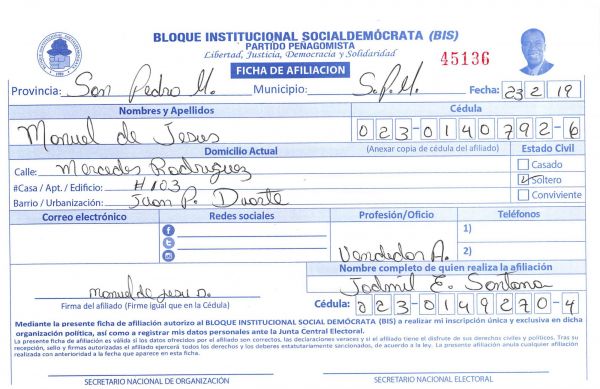 BLOQUE INSTITUCIONAL SOCIALDEMÓCRATA (BIS)
PARTIDO PEÑAGOMISTA
Libertad, Justicia, Democracia y Solidaridad
45136
FICHA DE AFILIACION
Provincia: San Pedro M. Municipio: S.P.M. Fecha: 23 2 19
Nombres y Apellidos Cédula
Manuel de Jesus 023-0140792-6
Domicilio Actual (Anexar copia de cédula del afiliado) Estado Civil
Calle: Mercedes Rodriguez Casado
#Casa / Apt. / Edificio: #103 Soltero
Barrio / Urbanización: Juan P. Duarte Conviviente
Correo electrónico Redes sociales Profesión/Oficio Teléfonos
1)
Vendedor A. 2)
Nombre completo de quien realiza la afiliación
Manuel de Jesu D. Jodmil E. Santana
Firma del afiliado (Firme igual que en la Cédula) Cédula: 023-0149270-4
Mediante la presente ficha de afiliación autorizo al BLOQUE INSTITUCIONAL SOCIAL DEMÓCRATA (BIS) a realizar mi inscripción única y exclusiva en dicha
organización política, así como a registrar mis datos personales ante la Junta Central Electoral.
La presente ficha de afiliación es válida si los datos ofrecidos por el afiliado son correctos, las declaraciones veraces y si el afiliado tiene el disfrute de sus derechos civiles y políticos. Tras su
recepción, sello y firmas autorizadas el afiliado ejercerá todos los derechos y los deberes estatutariamente sancionados, de acuerdo a la ley. La presente afiliación anula cualquier afiliación
realizada con anterioridad a la fecha que aparece en esta ficha.
SECRETARIO NACIONAL DE ORGANIZACIÓN SECRETARIO NACIONAL ELECTORAL